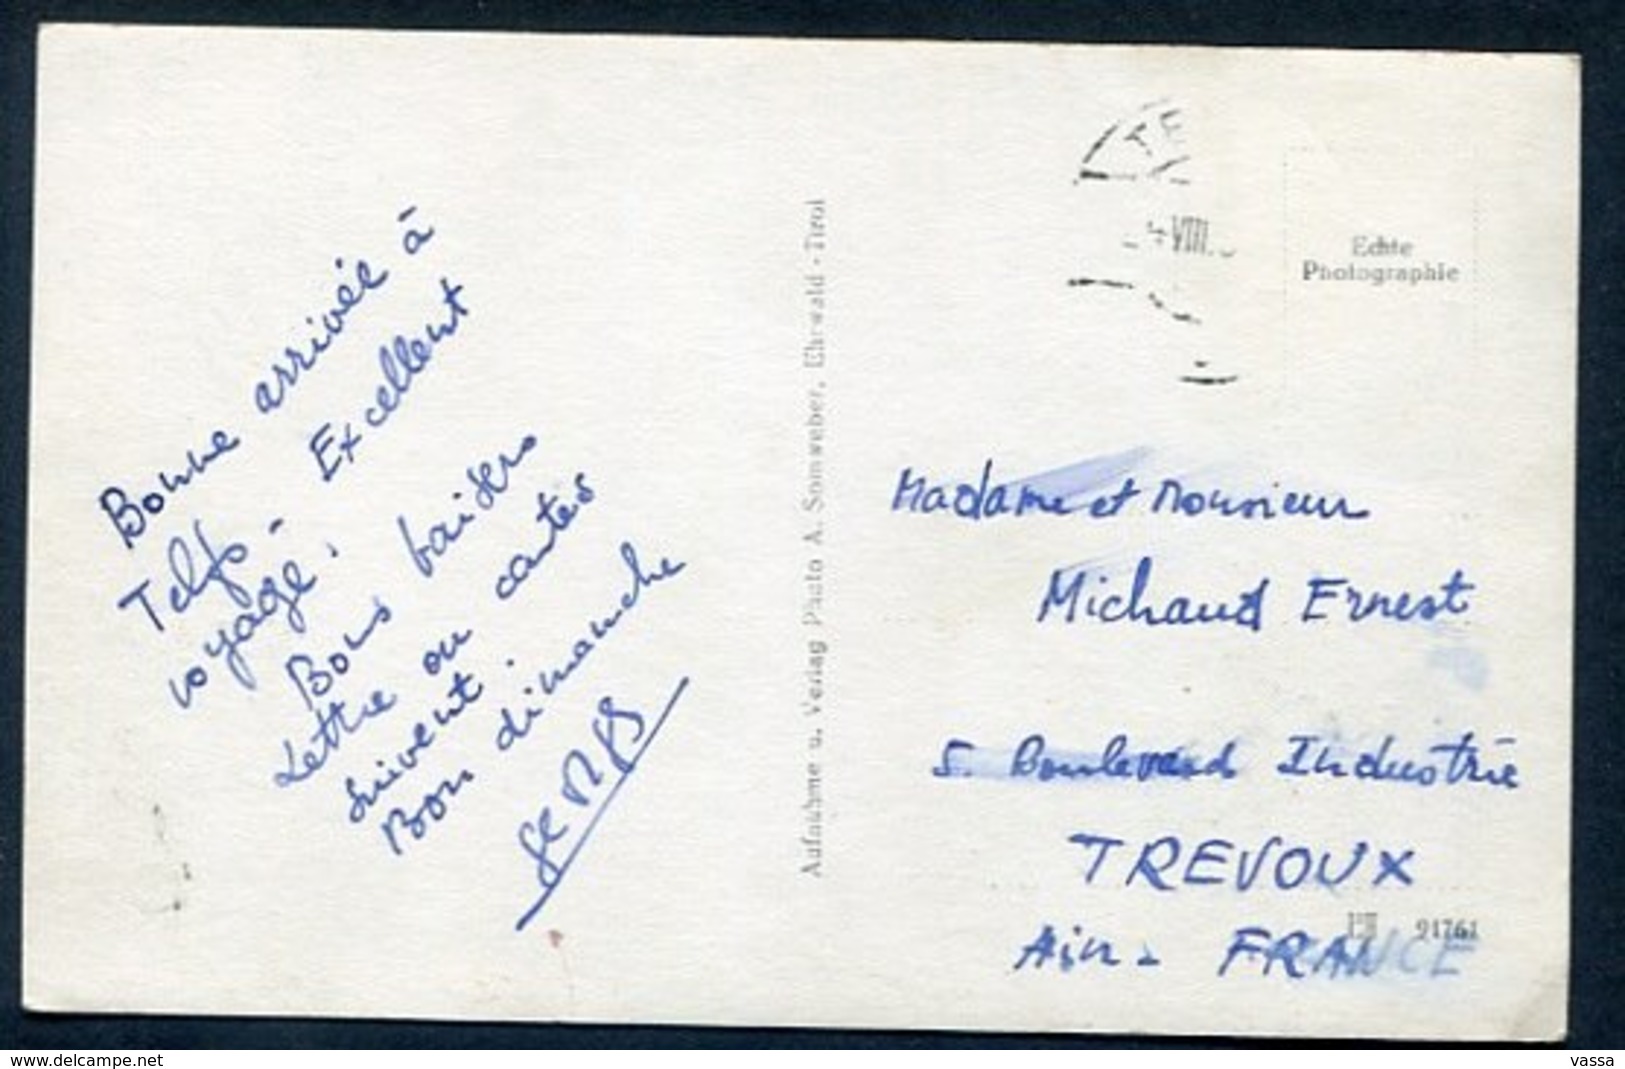 Bonne arrivée à
Telfs - Excellent
voyage.
Bons baisers
Lettre ou cartes
suivent.
Bon dimanche
Aufnahme u. Verlag Photo A. Somweber, Ehrwald - Tirol
TE
4 VIII.
Echte
Photographie
Madame et Monsieur
Michaud Ernest
5. Boulevard Industrie
TREVOUX
Ain - FRANCE
91761
www.delcampe.net
vassa